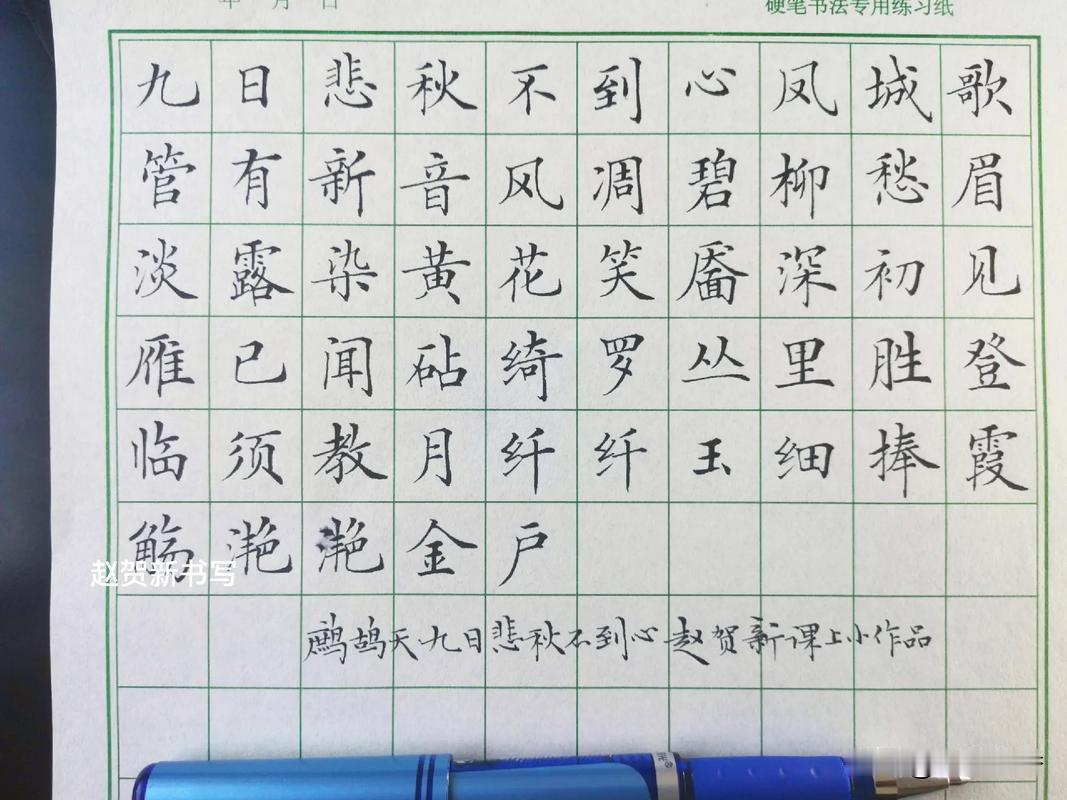 年 月 日 硬笔书法专用练习纸
九日悲秋不到心凤城歌
管有新音风凋碧柳愁眉
淡露染黄花笑靥深初见
雁已闻砧绮罗丛里胜登
临须教月纤纤玉细捧霞
觞滟滟金户
赵贺新书写
鹧鸪天·九日悲秋不到心赵贺新课上小作品